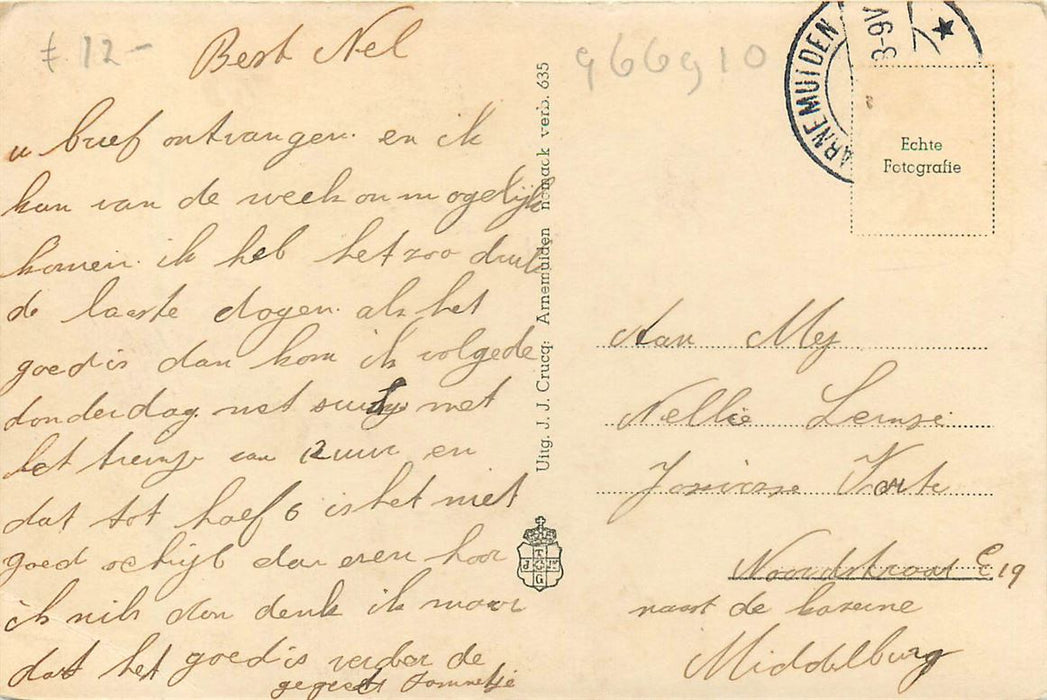 £ 12-
Best Nel
u brief ontvangen. en ik
kan van de week onmogelijk
komen. ik heb het zoo druk
de laaste dagen. als het
goed is dan kom ik volgede
donderdag. met
het treinje van 12 uur en
dat tot half 6 is het niet
goed schrijf dan even hoor
ik niks dan denk ik maar
dat het goed is verder de
gegroet Jannetje
Uitg. J. J. Crucq- Arnemuiden nemaak verb. 635
966910
ARNEMUIDEN
8-9V
Echte
Fotografie
T
J
G
Aan Mej
Nellie
Noordstraat E 19
naast de kazerne
Middelburg